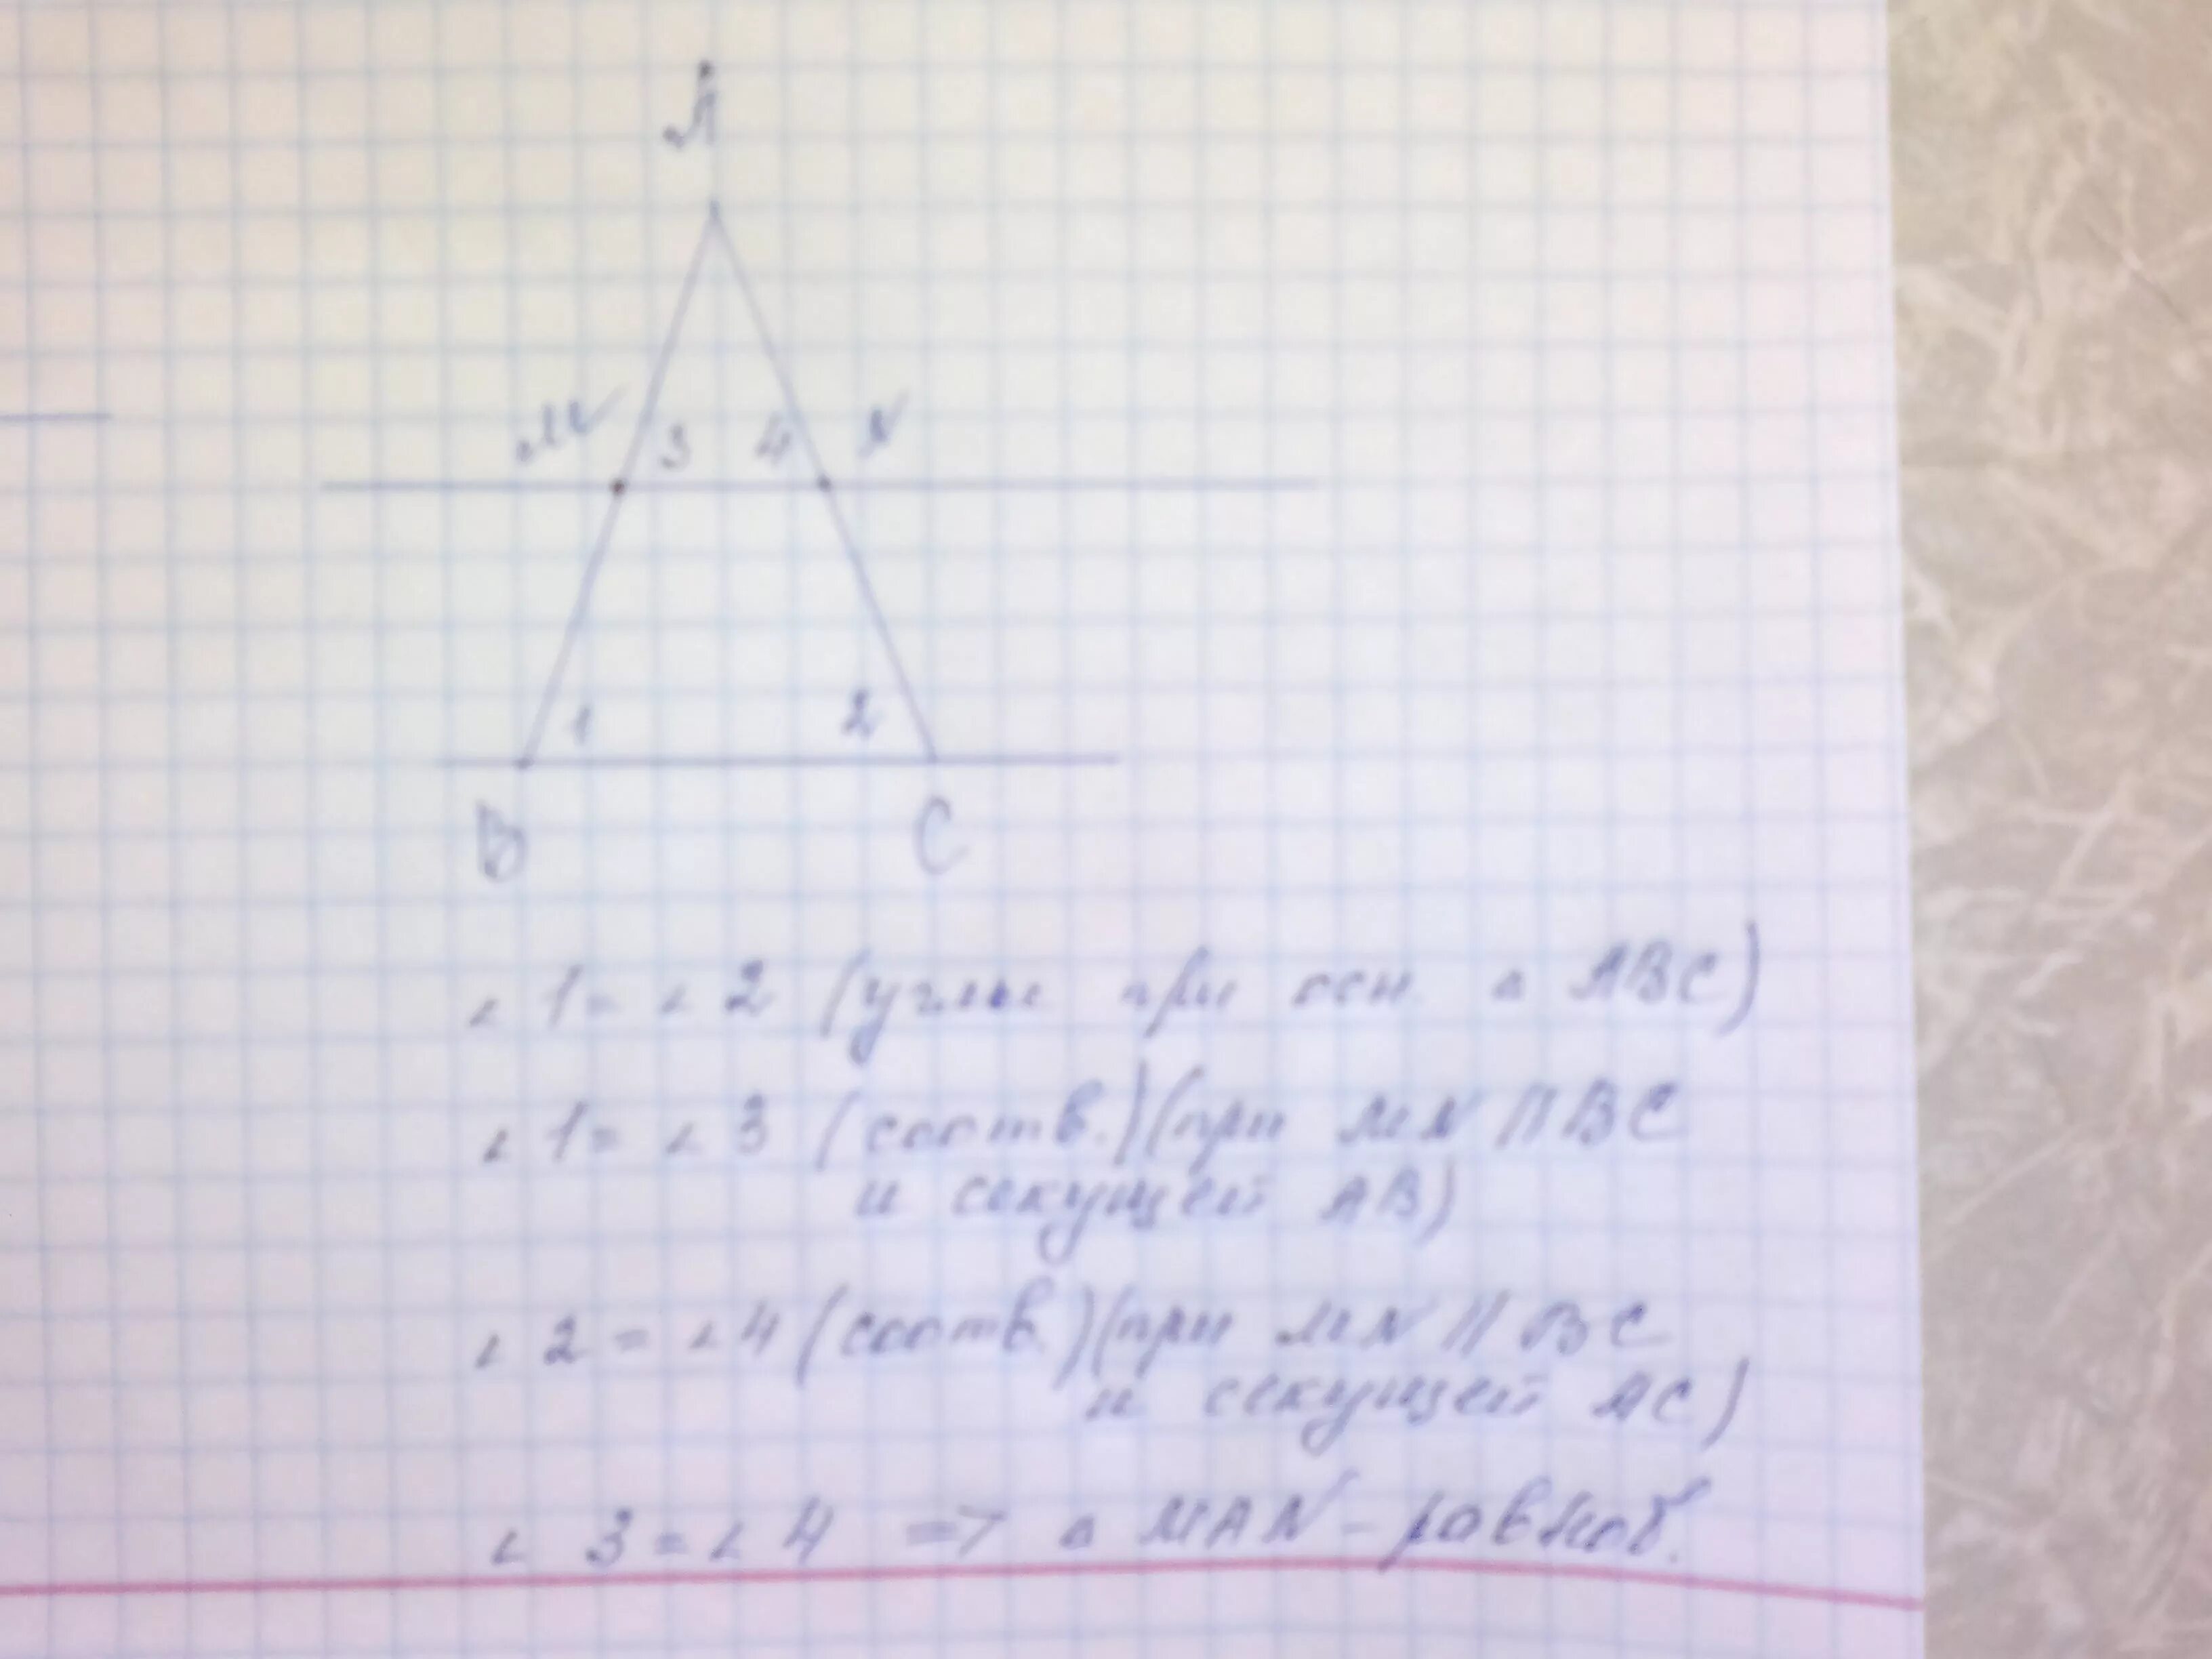 A
M 3 4 N
1 2
B C
∠ 1 = ∠ 2 (углы при осн. △ ABC)
∠ 1 = ∠ 3 (соотв.) (при MN || BC
и секущей AB)
∠ 2 = ∠ 4 (соотв.) (при MN || BC
и секущей AC)
∠ 3 = ∠ 4 => △ MAN - равноб.